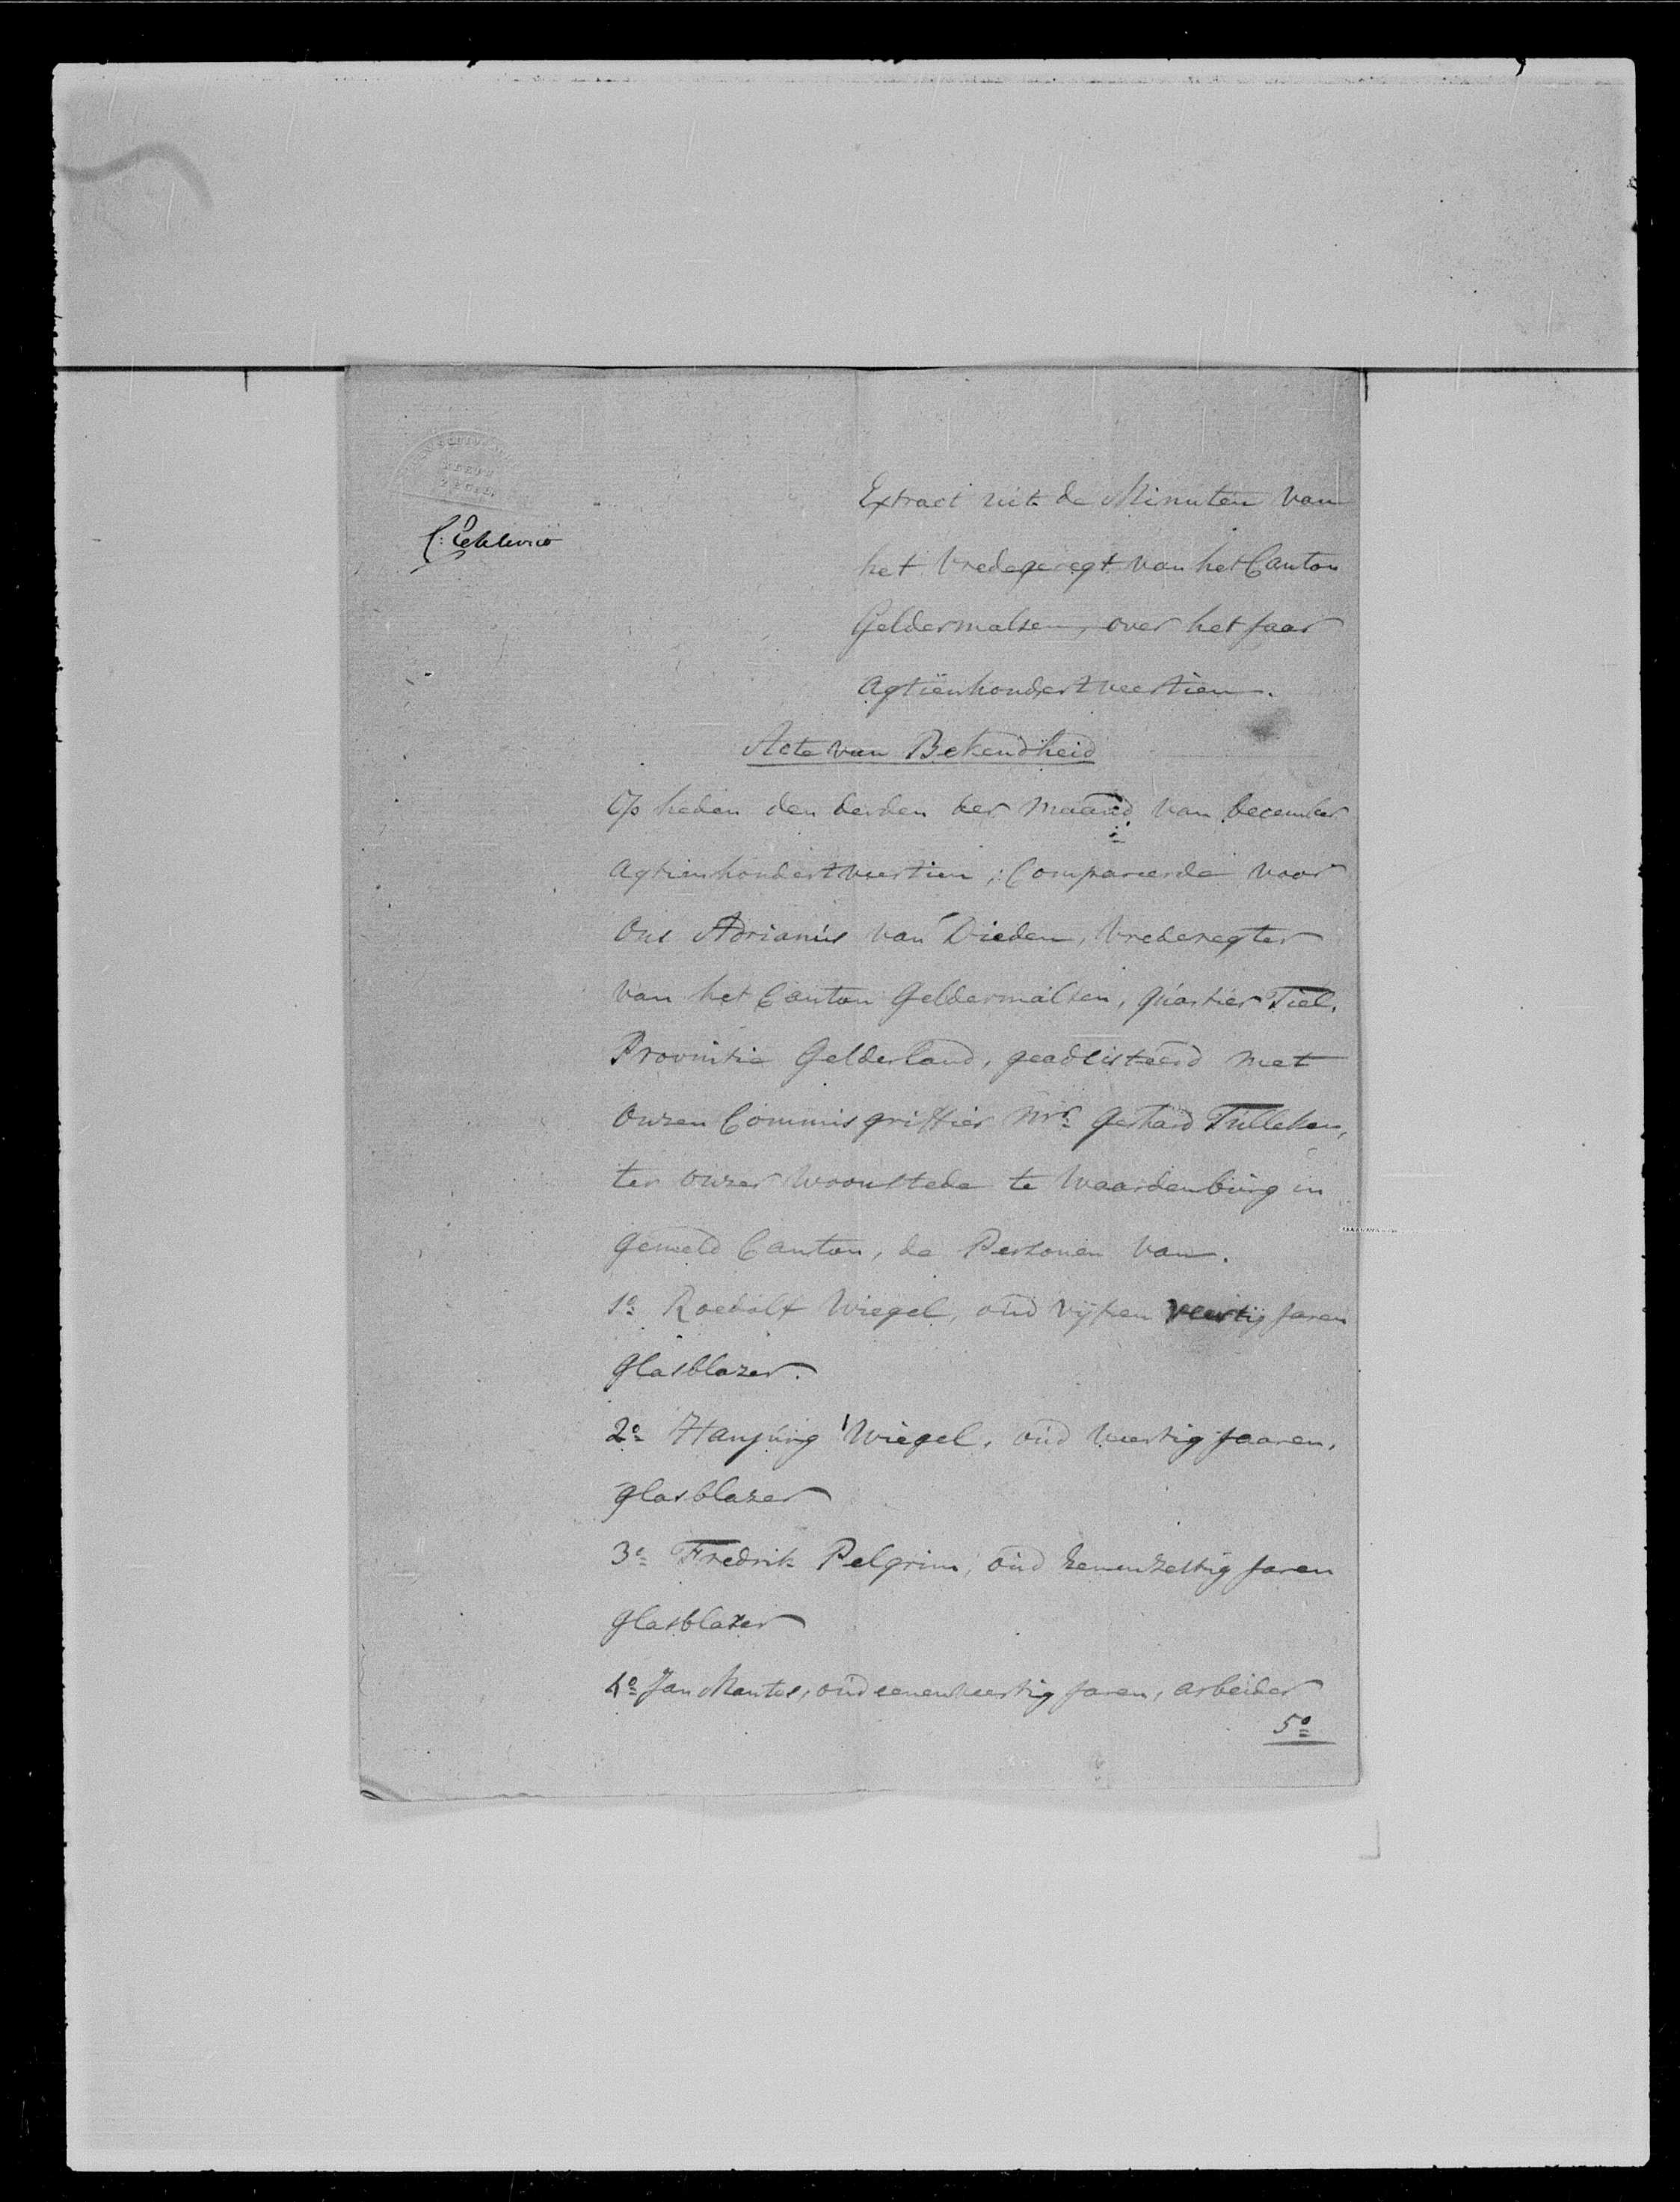 Extract uit de Minuten van
het Vredegeregt van het Canton
Geldermalsen, over het jaar
Agtienhondertveertien.
Acte van Bekendheid
Op heden den derden der Maand van december
Agtienhondertveertien; Compareerde voor
Ons Adrianus van Dieden, Vrederegter
van het Canton Geldermalsen, Quartier Tiel,
Provintie Gelderland, geadsisteerd met
Onzen Commisgriffier Mr. Gerhard Tulleken,
ter onzer woonstede te Waardenburg in
gemeld Canton, de Personen van.
1o Roedolf Wiegel, oud vijfen veertig jaren
Glasblazer.
2o Hanjurg Wiegel, oud veertig jaaren,
glasblazer
3o Fredrik Pelgrim, oud zevenzestig jaren
Glasblazer
4o Jan Mantel, oud eenenveertig jaren, arbeider
5o